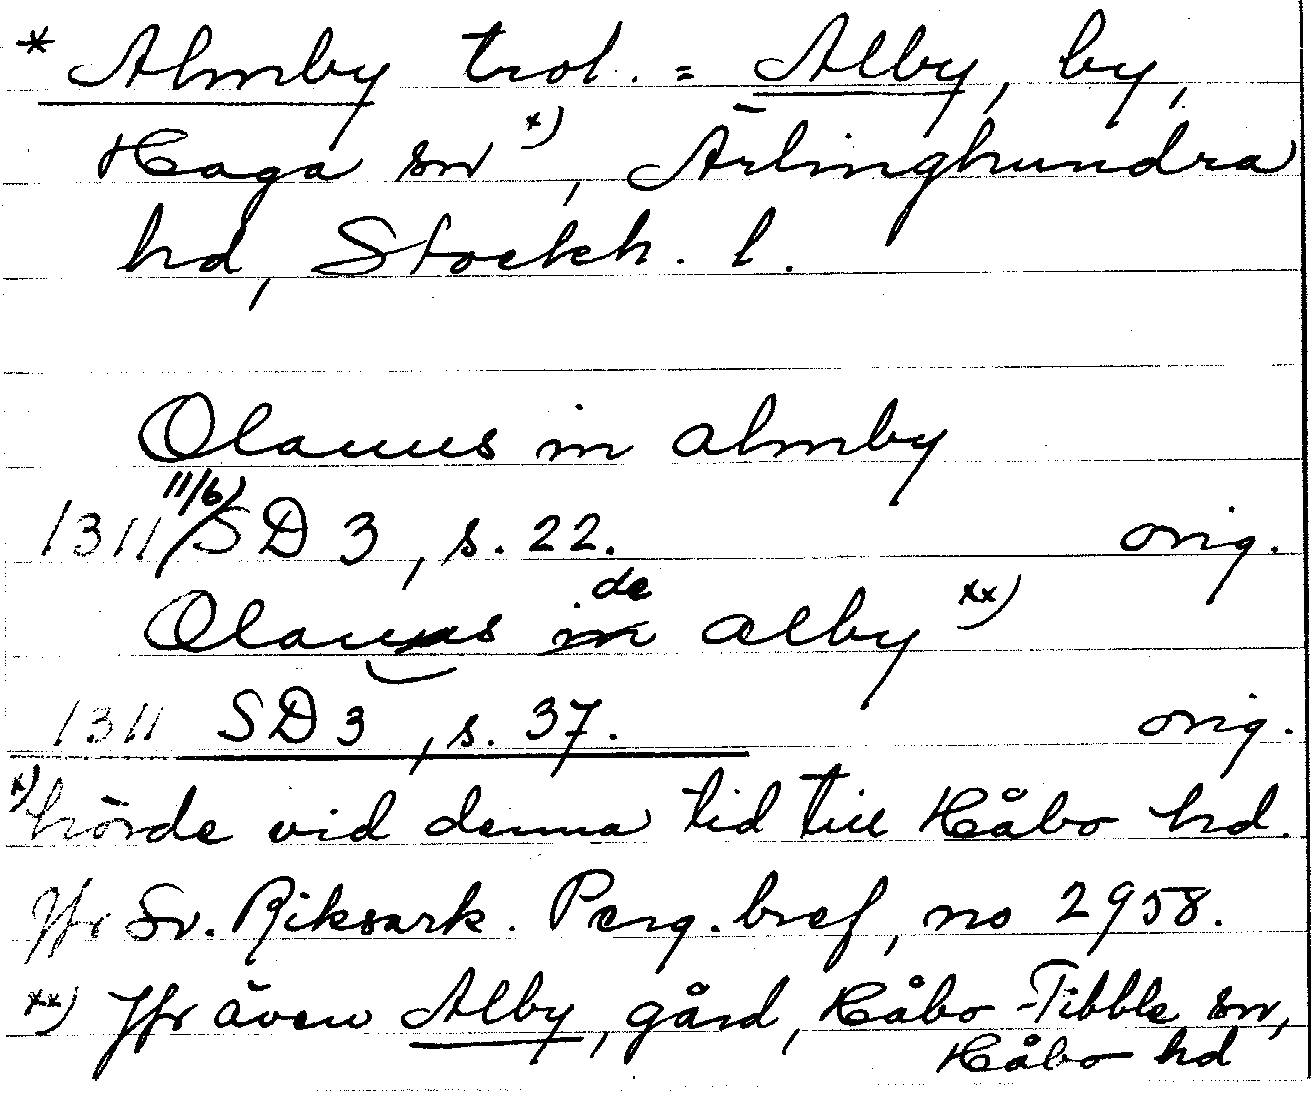 * Almby trol. = Alby, by,
Haga sn x), Ärlinghundra
hd, Stockh. l.
Olauus in almby
1311 11/6) SD 3, s. 22. orig.
Olaus de alby xx)
1311 SD 3, s. 37. orig.
x) hörde vid denna tid till Håbo hd.
Jfr Sv. Riksark. Perg. bref, no 2958.
xx) Jfr även Alby, gård, Håbo-Tibble sn,
Håbo hd